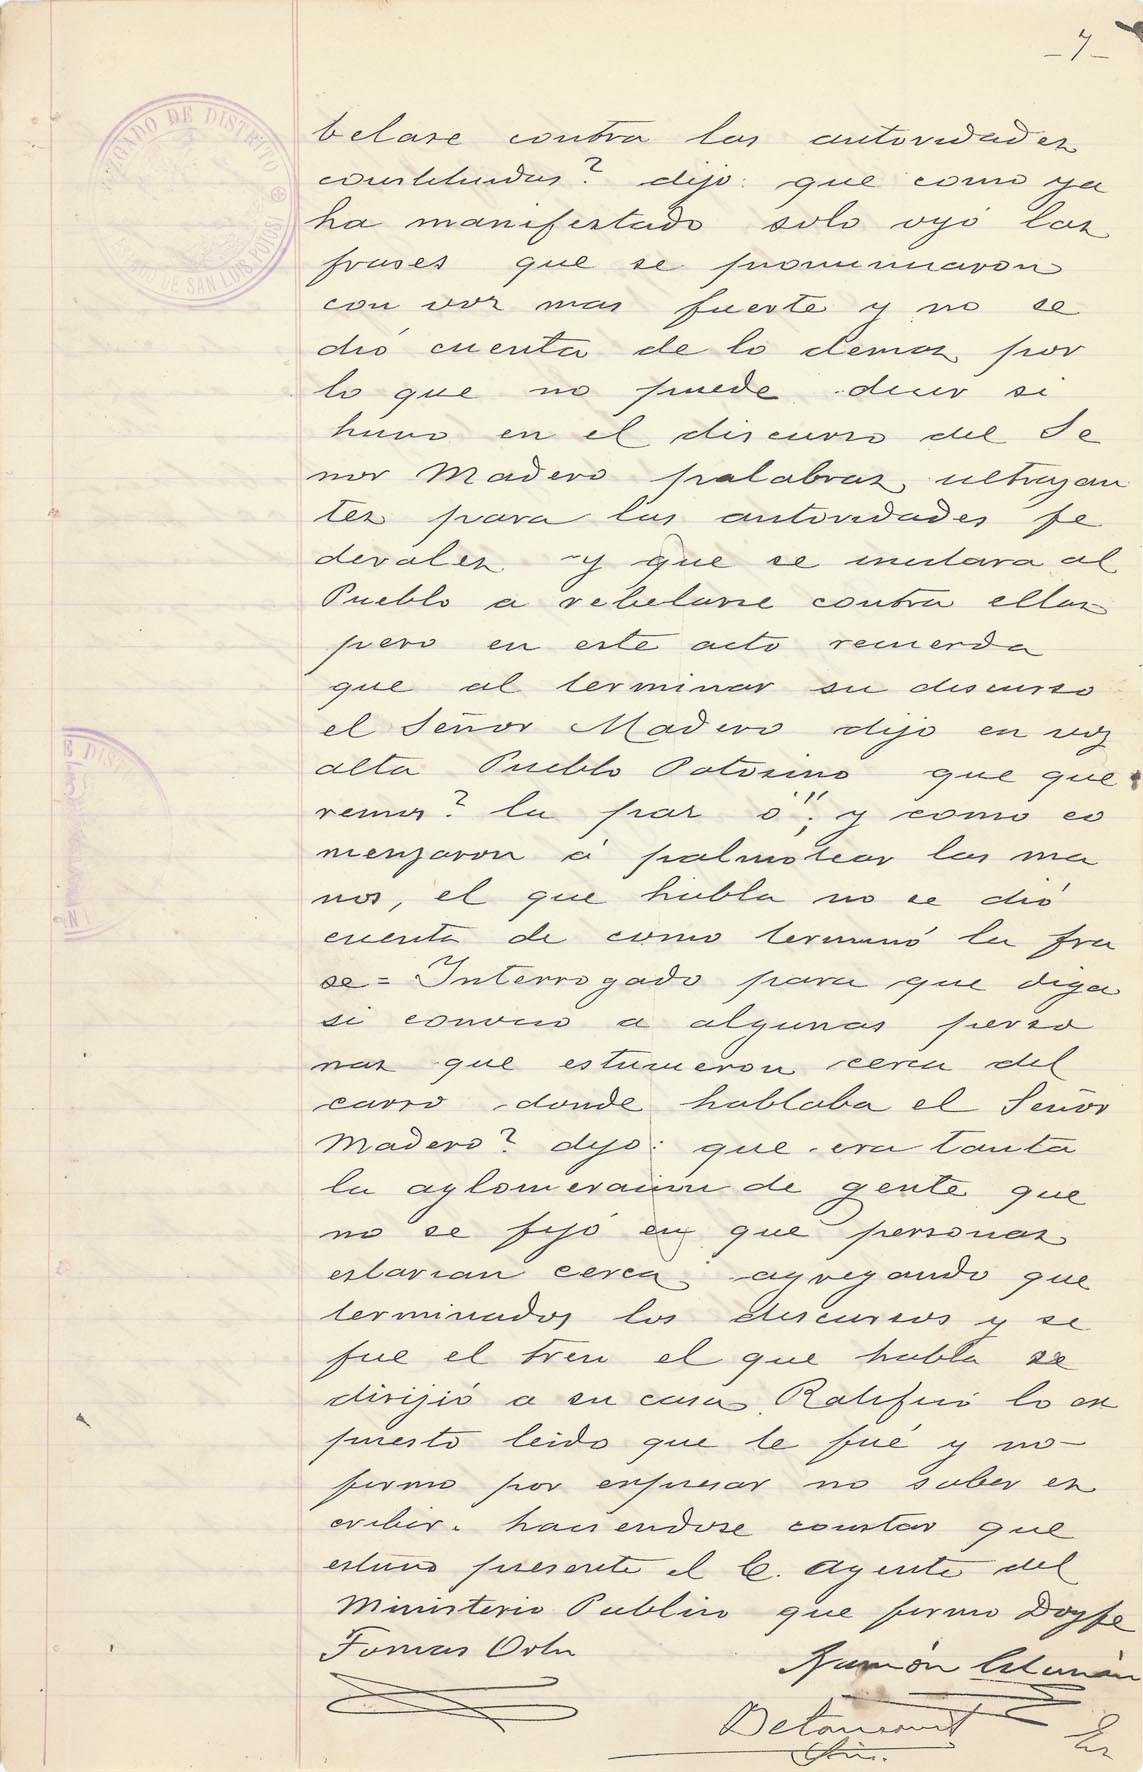 -7-
JUZGADO DE DISTRITO
DE SAN LUIS POTOSI
belase contra las autoridades
constituidas? dijo: que como ya
ha manifestado solo oyó las
frases que se pronunciaron
con voz mas fuerte y no se
dió cuenta de lo demas, por
lo que no puede decir si
huvo en el discurso del Se
ñor Madero palabras, ultrajan
tes para las autoridades fe
derales y que se incitara al
Pueblo a rebelarse contra ellas
pero en este acto recuerda
que al terminar su discurso
el Señor Madero dijo en voz
alta Pueblo Potosino que que
remos? la paz ó"; y como co
menzaron á palmotear las ma
nos, el que habla no se dió
cuenta de como terminó la fra
se= Interrogado para que diga
si conocio a algunas perso
nas que estuvieron cerca del
carro donde hablaba el Señor
Madero? dijo: que era tanta
la aglomeracion de gente que
no se fijó en que personas
estarian cerca, agregando que
terminados los discursos y se
fue el tren el que habla se
dirijió a su casa. Ratificó lo ex
puesto leido que le fué y no
firmo por expresar no saber es
cribir. haciendose constar que
estuvo presente el C. Agente del
Ministerio Publico que firmo Doyfe
Tomas Ortiz
Ramón
Betancourt
Srio.
En
E DIST